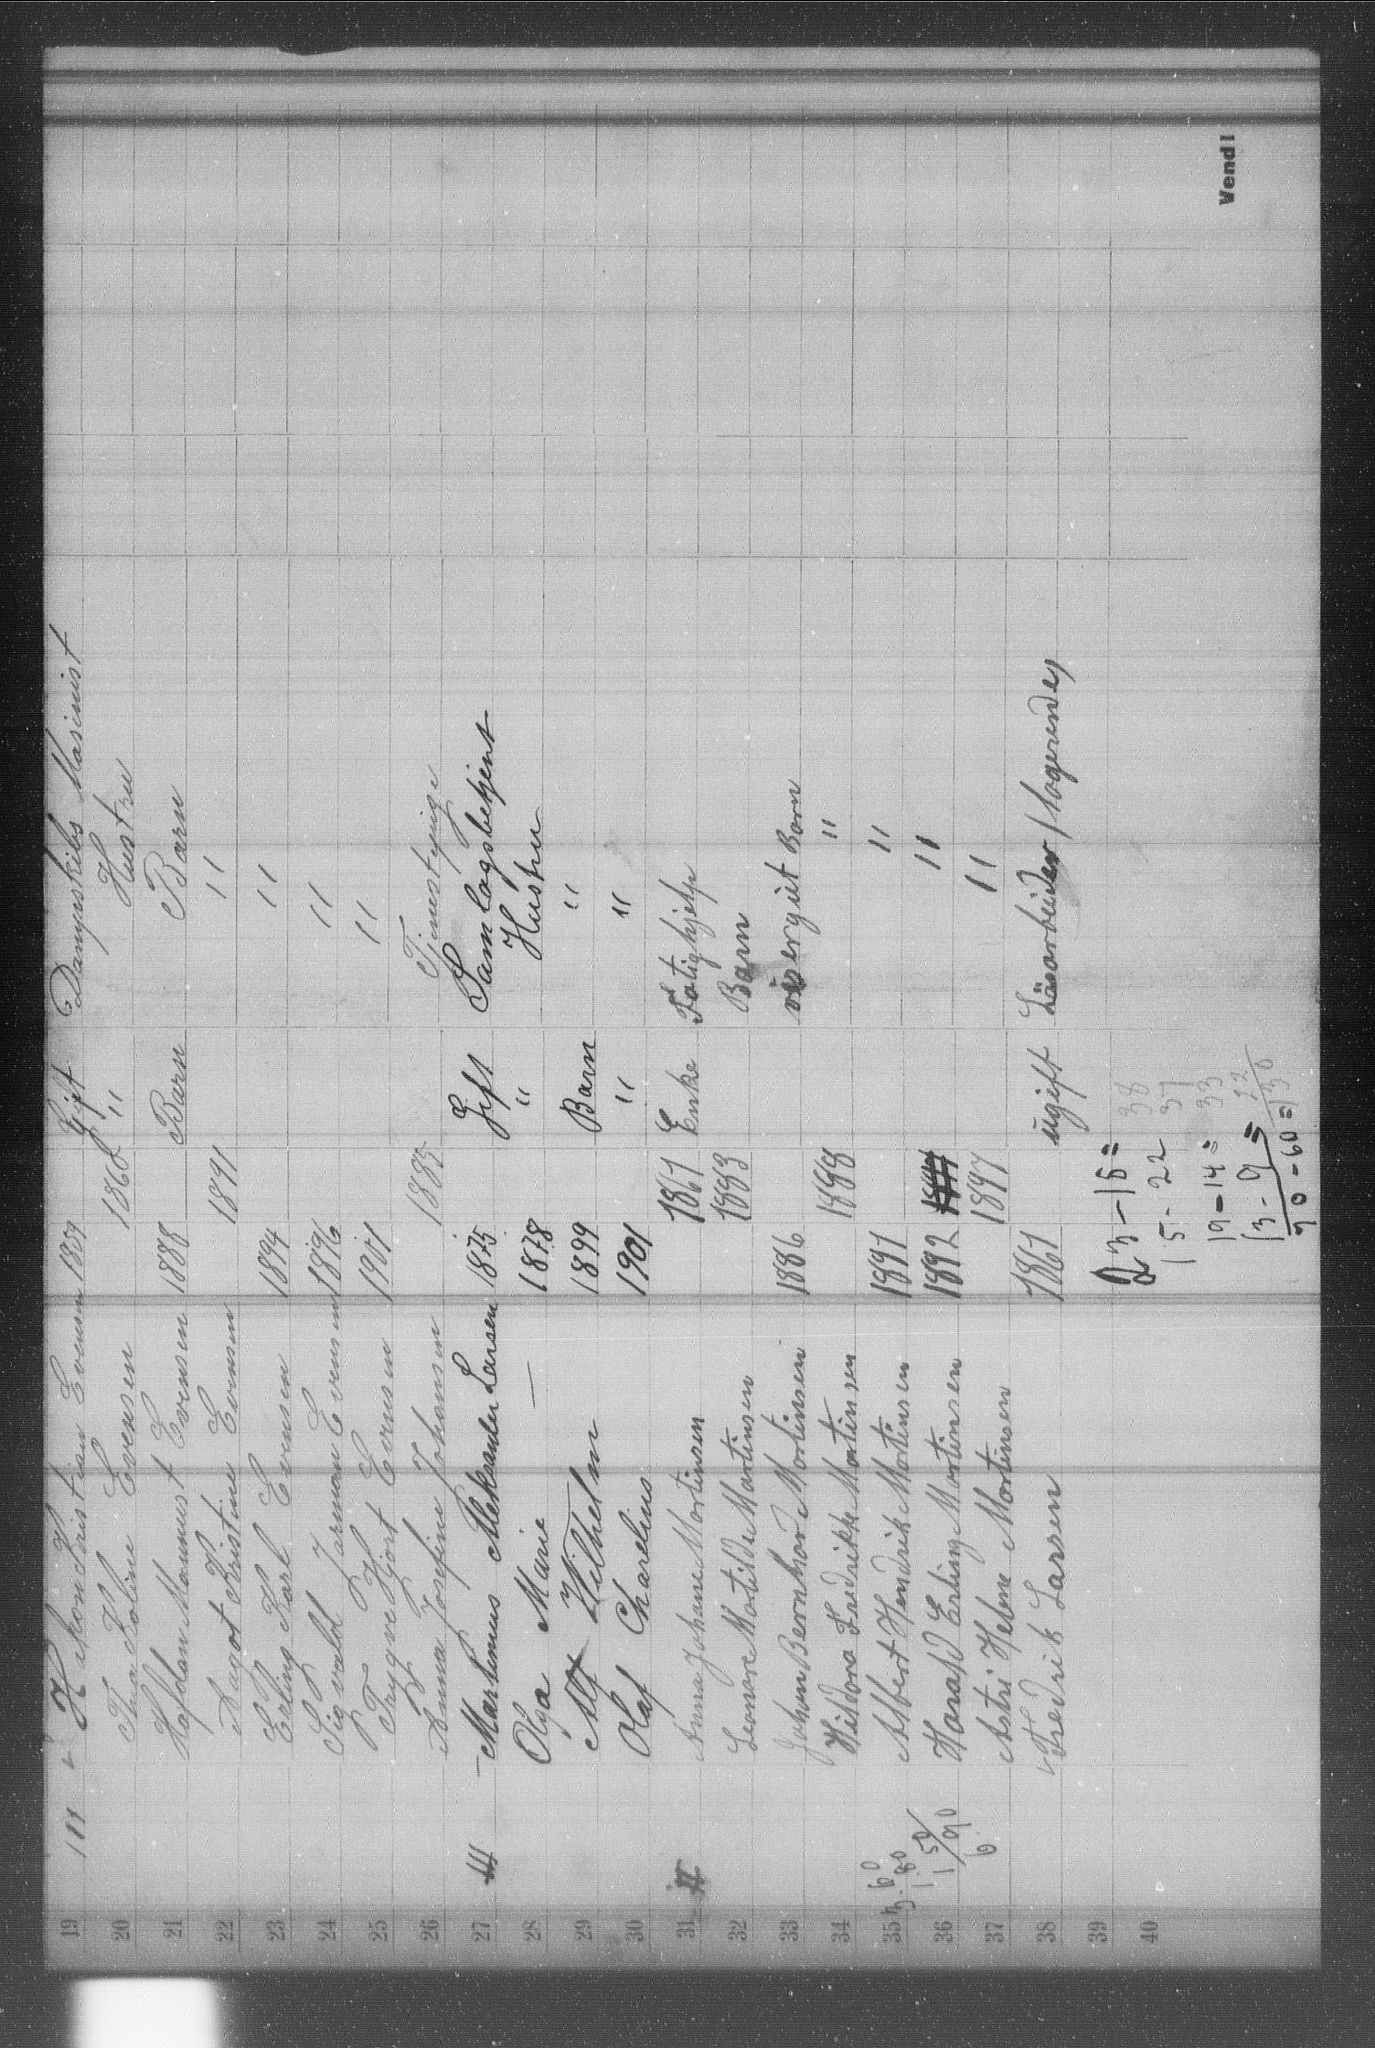 19 III Håkon Kristian Evensen 1859 Gift Dampskibs Masinist
20 Thea Koline Evensen 1862 " Hustru
21 Hafdan Maurnust Evensen 1888 Barn Barn
22 Dagot Kristine Evensen 1891 "
23 Erling Karl Evensen 1894 "
24 Sigvald Jarman Evensen 1896 "
25 Trygve Hjort Evensen 1901 "
26 Anna Josefine Johansen 1885 Tjenestepige
27 Martinus Aleksander Larsen 1875 Gift Samlagsbetjent
28 Olga Marie — 1878 " Hustru
29 Alf Wilhelm 1899 Barn "
30 Olaf Charelius 1901 " "
31 II Anna Johane Mortinsen 1861 Enke Fatighjelp
32 Leonore Matilde Martinsen 1883 Barn
33 Johan Bernhard Mortinsen 1886 visergut Barn
34 Hildora Fredrikke Martinsen 1888 "
35 Albert Hendrik Mortinsen 1891 "
36 Harald Erling Mortinsen 1892 "
37 Astri Helene Mortinsen 1897 "
38 Fredrik Larsen 1861 ugift Løsarbeider / logerende /
39
40
3.60
1.80
1 50
6.90
23-15= 38
15-22 37
19-14= 33
13-9= 22
70-60=130
Vend!